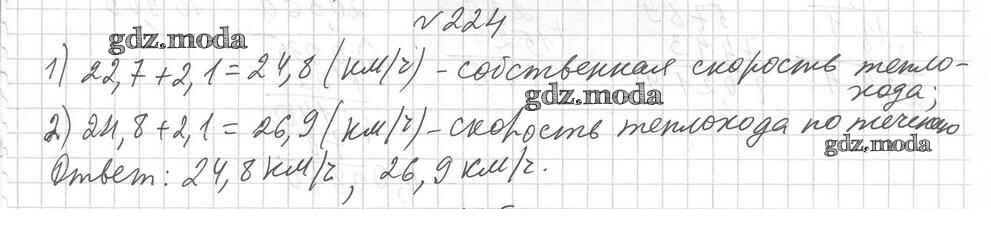 № 224
gdz.moda
1) 22,7 + 2,1 = 24,8 (км/ч) - собственная скорость тепло-
хода;
gdz.moda
2) 24,8 + 2,1 = 26,9 (км/ч) - скорость теплохода по течению
gdz.moda
Ответ: 24,8 км/ч, 26,9 км/ч.